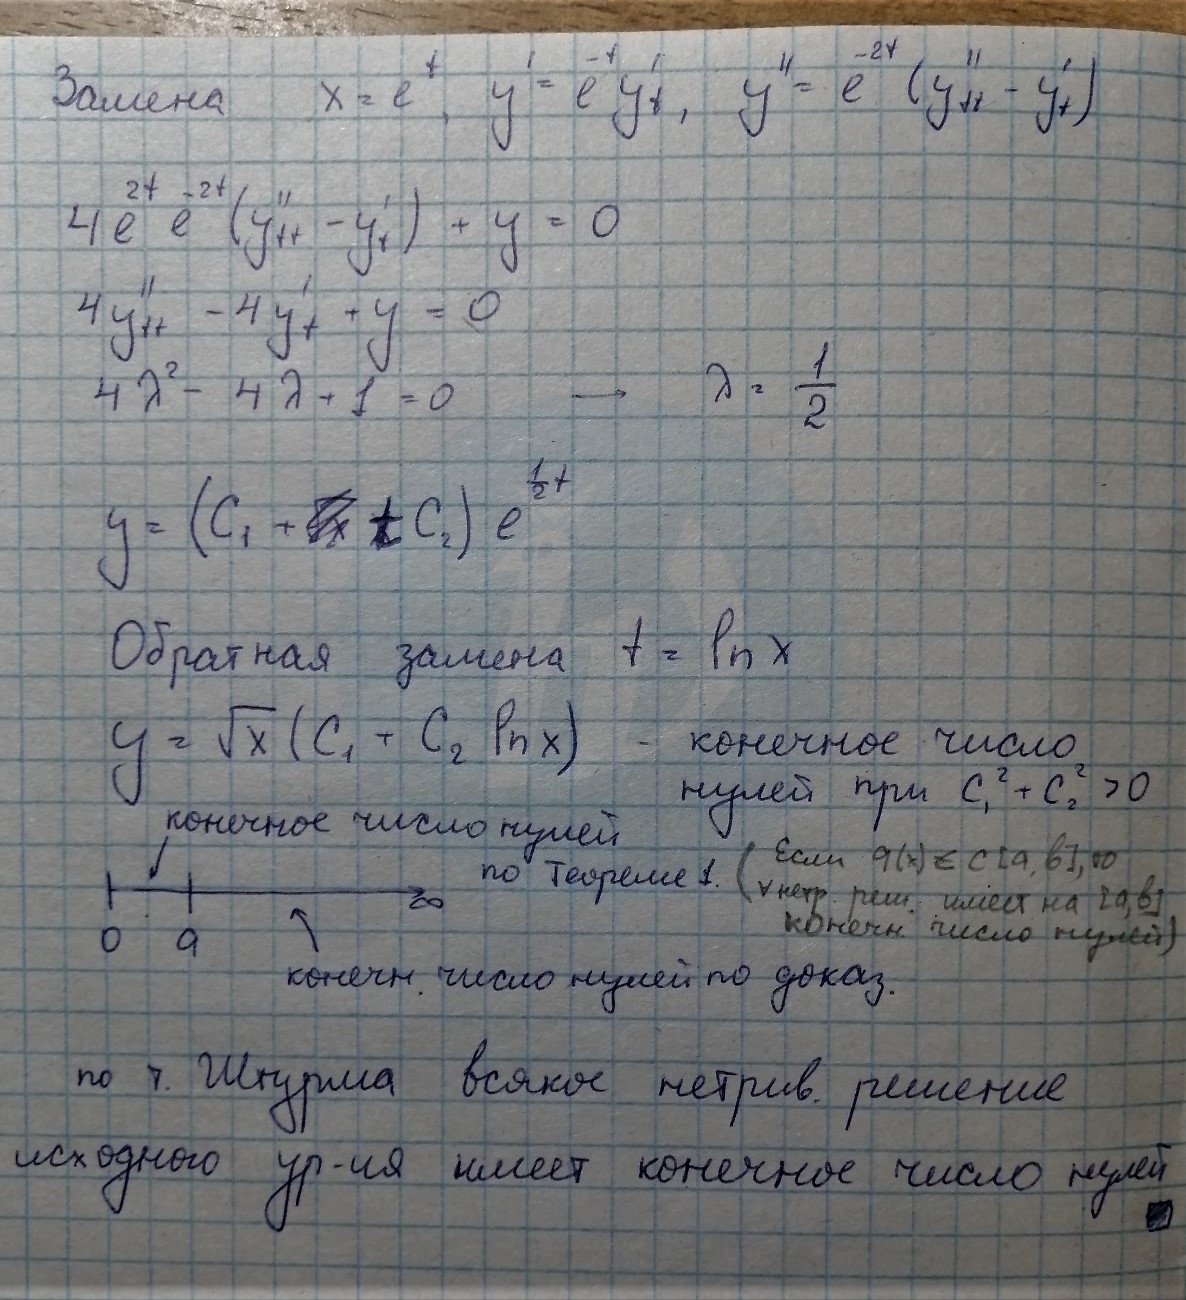 Замена x = e^t, y' = e^{-t} y'_t, y'' = e^{-2t} (y''_{tt} - y'_t)
4e^{2t} e^{-2t} (y''_{tt} - y'_t) + y = 0
4y''_{tt} - 4y'_t + y = 0
4λ² - 4λ + 1 = 0 → λ = 1/2
y = (C₁ + t C₂) e^{1/2 t}
Обратная замена t = ln x
y = √x (C₁ + C₂ ln x) - конечное число
нулей при C₁² + C₂² > 0
конечное число нулей
по Теореме 1. (Если q(x) ∈ C[a,b], то
∀ нетр. реш. имеет на [a,b]
конечн. число нулей)
0 a ∞
конечн. число нулей по доказ.
по т. Штурма всякое нетрив. решение
исходного ур-ия имеет конечное число нулей